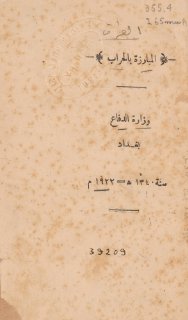 355.4
265muA
العراق
المبارزة بالحراب
وزارة الدفاع
بغداد
سنة ١٣٤٠ هـ = ١٩٢٢ م
39209